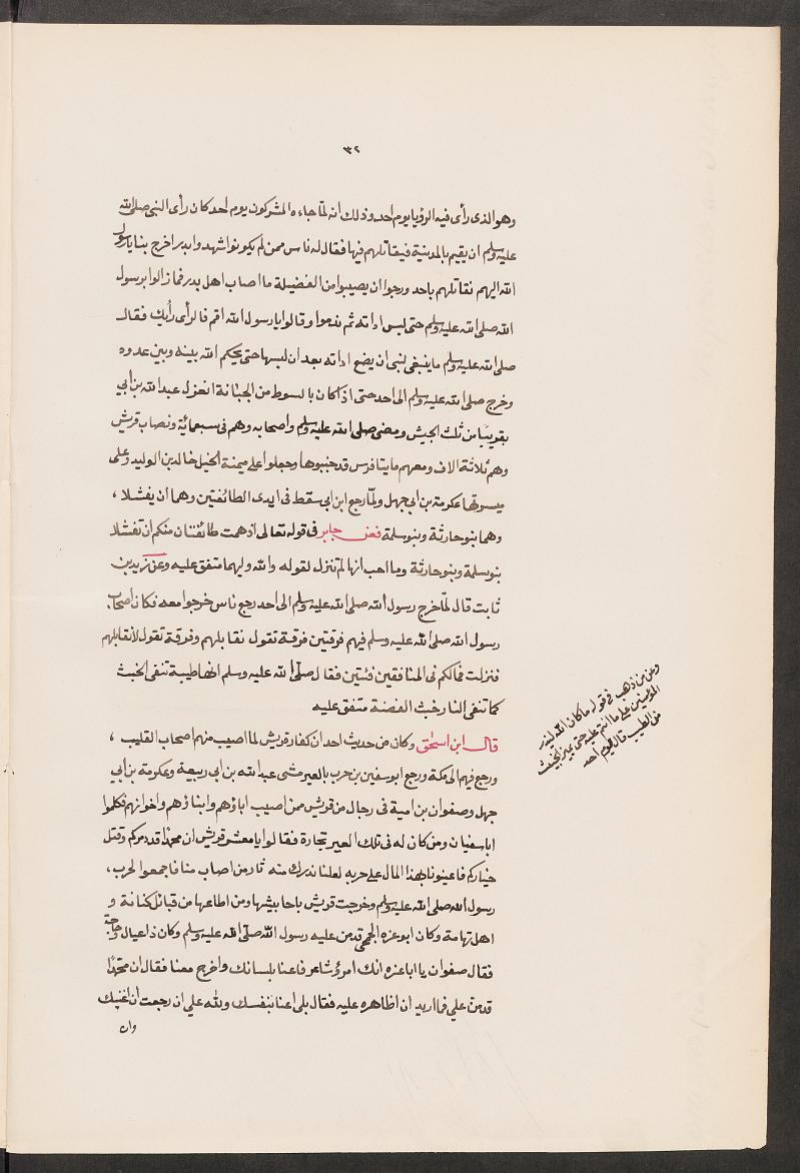 ٣٢
وهو الذى رأى فيه الرؤيا يوم احد وذلك انه لما جاءه المشركون يوم احد كان رأى النبى صلى الله
عليه وسلم ان يقيم بالمدينة فيقاتلهم فيها فقال له ناس ممن لم يكونوا شهدوا بدر اخرج بنا يا رسول
الله اليهم نقاتلهم باحد ورجوا ان يصيبوا من الفضيلة ما اصاب اهل بدر فما زالوا برسول
الله صلى الله عليه وسلم حتى لبس اداته ثم ندموا وقالوا يا رسول الله اقم فالرأى رأيك فقال
صلى الله عليه وسلم ما ينبغى لنبى ان يضع اداته بعد ان لبسها حتى يحكم الله بينه وبين عدوه
وخرج صلى الله عليه وسلم الى احد حتى اذا كان بالسوط من الجبانة انعزل عبد الله بن أبي
بقريبا من ثلث الجيش ومضى صلى الله عليه وسلم واصحابه وهم فى سبعمائة ونصاب قريش
وهم ثلاثة الاف ومعهم مايتا فرس قد جنبوها وجعلوا على ميمنة الخيل خالد بن الوليد وعلى
ميسرتها عكرمة بن ابي جهل ولما رجع ابن ابى سقط فى ايدى الطائفتين وهما ان يفشلا ،
وهما بنو حارثة وبنو سلمة فعن جابر فى قوله تعالى اذ همت طائفتان منكم ان تفشلا
بنو سلمة وبنو حارثة وما احب انها لم تنزل لقوله والله وليهما متفق عليه وعن زيد بن
ثابت قال لما خرج رسول الله صلى الله عليه وسلم الى احد رجع ناس خرجوا معه فكان اصحاب
رسول الله صلى الله عليه وسلم فيهم فرقتين فرقة تقول نقابلهم وفرقة تقول لا نقابلهم
فنزلت فمالكم فى المنافقين فئتين فقال صلى الله عليه وسلم انها طيبة تنفى الخبث
كما تنفى النار خبث الفضة متفق عليه
قال ابن اسحق وكان من حديث احد ان كفار قريش لما اصيب منهم اصحاب القليب ،
ورجع فيهم الى مكة ورجع ابو سفين بن حرب بالعير مشى عبد الله بن ابى ربيعة وعكرمة بن ابي
جهل وصفوان بن امية فى رجال من قريش ممن اصيب اباؤهم وابناؤهم واخوانهم فكلموا
ابا سفيان ومن كان له فى تلك العير تجارة فقالوا يا معشر قريش ان محمدا قد وتركم وقتل
خياركم فاعينونا بهذا المال على حربه لعلنا ندرك منه ثار من اصاب منا فاجمعوا الحرب ،
رسول الله صلى الله عليه وسلم وخرجت قريش باحابيشها ومن اطاعها من قبائل كنانة و
اهل تهامة وكان ابو عزه الجمحى قد من عليه رسول الله صلى الله عليه وسلم وكان ذا عيال وحاجة
فقال صفوان يا ابا عزه انك امرؤ شاعر فاعنا بلسانك واخرج معنا فقال ان محمدا
قد من علي فما اريد ان اظاهره عليه فقال بلى اعنا بنفسك ولله علي ان رجعت ان اغنيك
وان
وعن من ذهب فى قوله ما كان الله ليذر
المؤمنين على ما انتم عليه حتى يميز الخبيث
من الطيب قال يوم احد